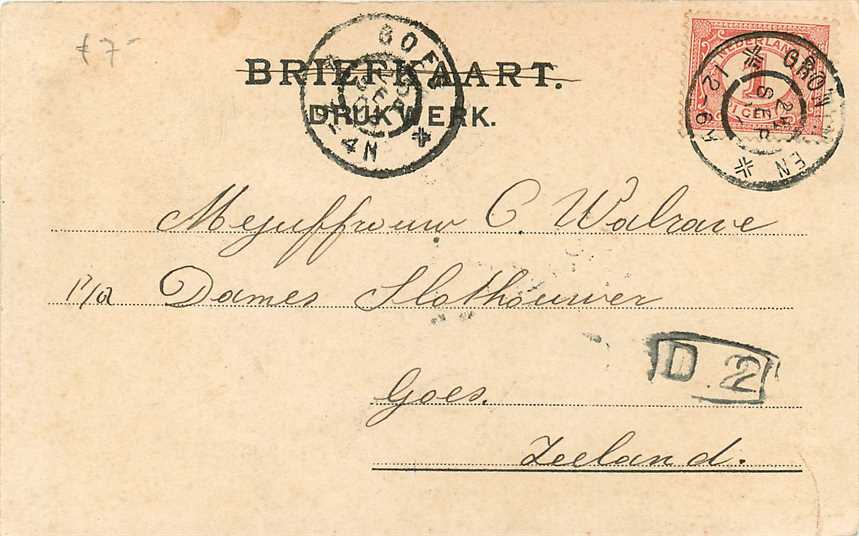 £ 7-
BRIEFKAART.
DRUKWERK.
GOES
NEDERLAND
1
CENT
12-6N
Mejuffrouw C. Walrave
P/a Dames Slothouwer
D 2
Goes.
Zeeland.